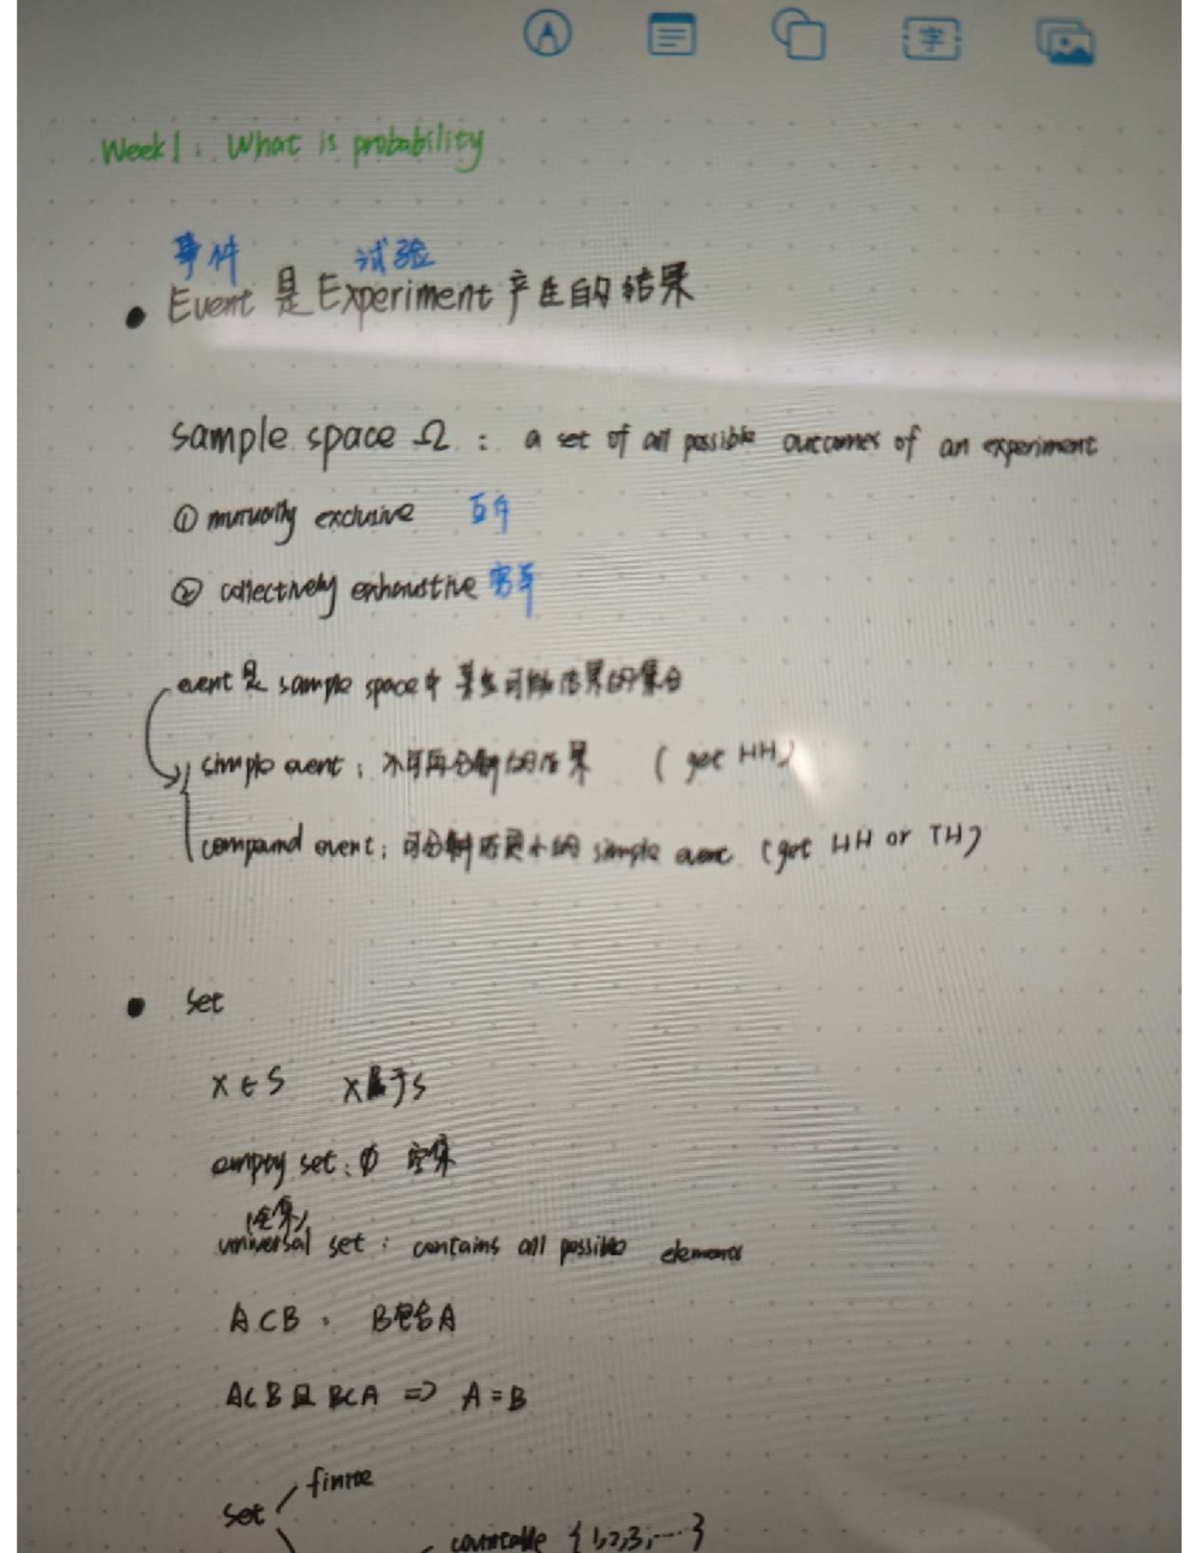 字
Week 1: What is probability
事件 试验
Event 是 Experiment 产生的结果
sample space Ω : a set of all possible outcomes of an experiment
① mutually exclusive 互斥
② collectively exhaustive 穷举
event 是 sample space中 某些可能结果的集合
simple event: 不可再分割的结果 ( get HH )
compound event: 可分割成更小的 simple event (get HH or TH)
set
X ∈ S X属于S
empty set: ∅ 空集
(全集)
universal set : contains all possible elements
A⊂B : B包含A
A⊂B 且 B⊂A => A=B
finite
set
countable {1,2,3,....}